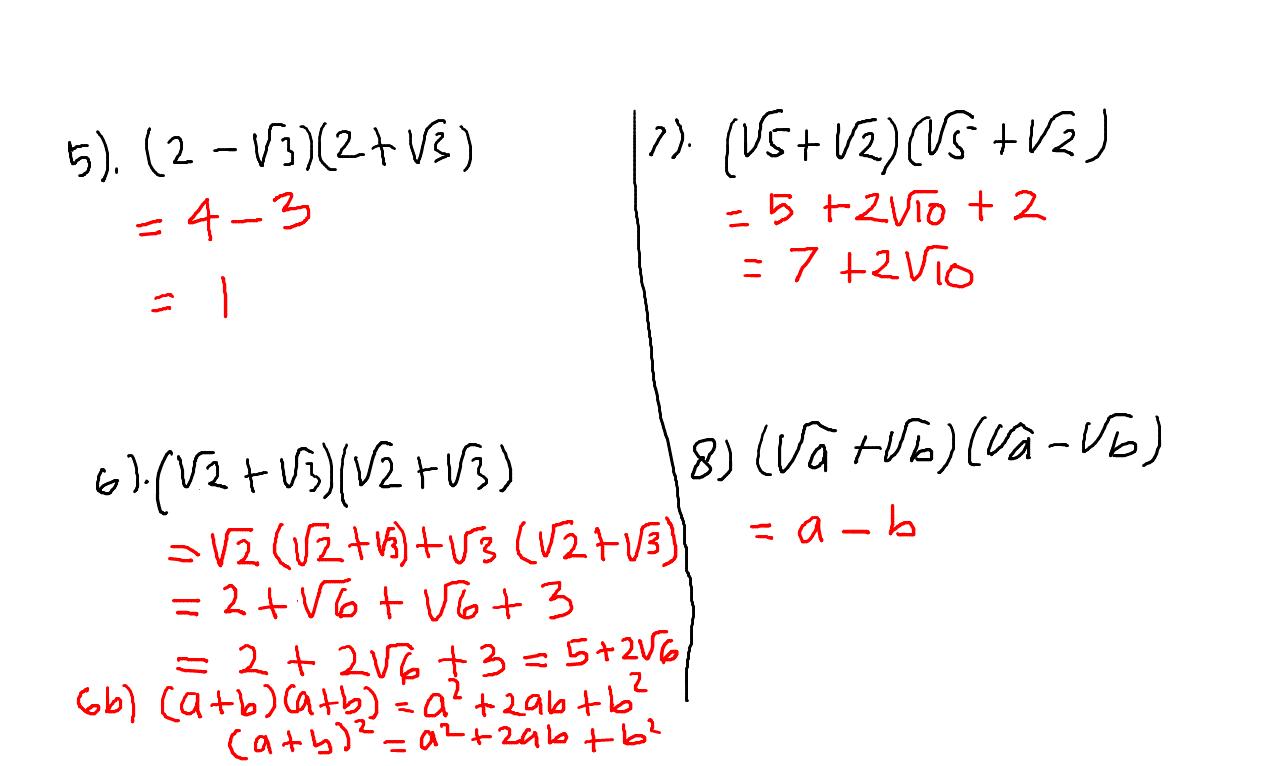 5). (2 - √3)(2 + √3)
= 4 - 3
= 1
6).(√2 + √3)(√2 + √3)
= √2 (√2 + √3) + √3 (√2 + √3)
= 2 + √6 + √6 + 3
= 2 + 2√6 + 3 = 5 + 2√6
6b) (a+b)(a+b) = a² + 2ab + b²
(a+b)² = a² + 2ab + b²
7). (√5 + √2)(√5 + √2)
= 5 + 2√10 + 2
= 7 + 2√10
8) (√a + √b)(√a - √b)
= a - b